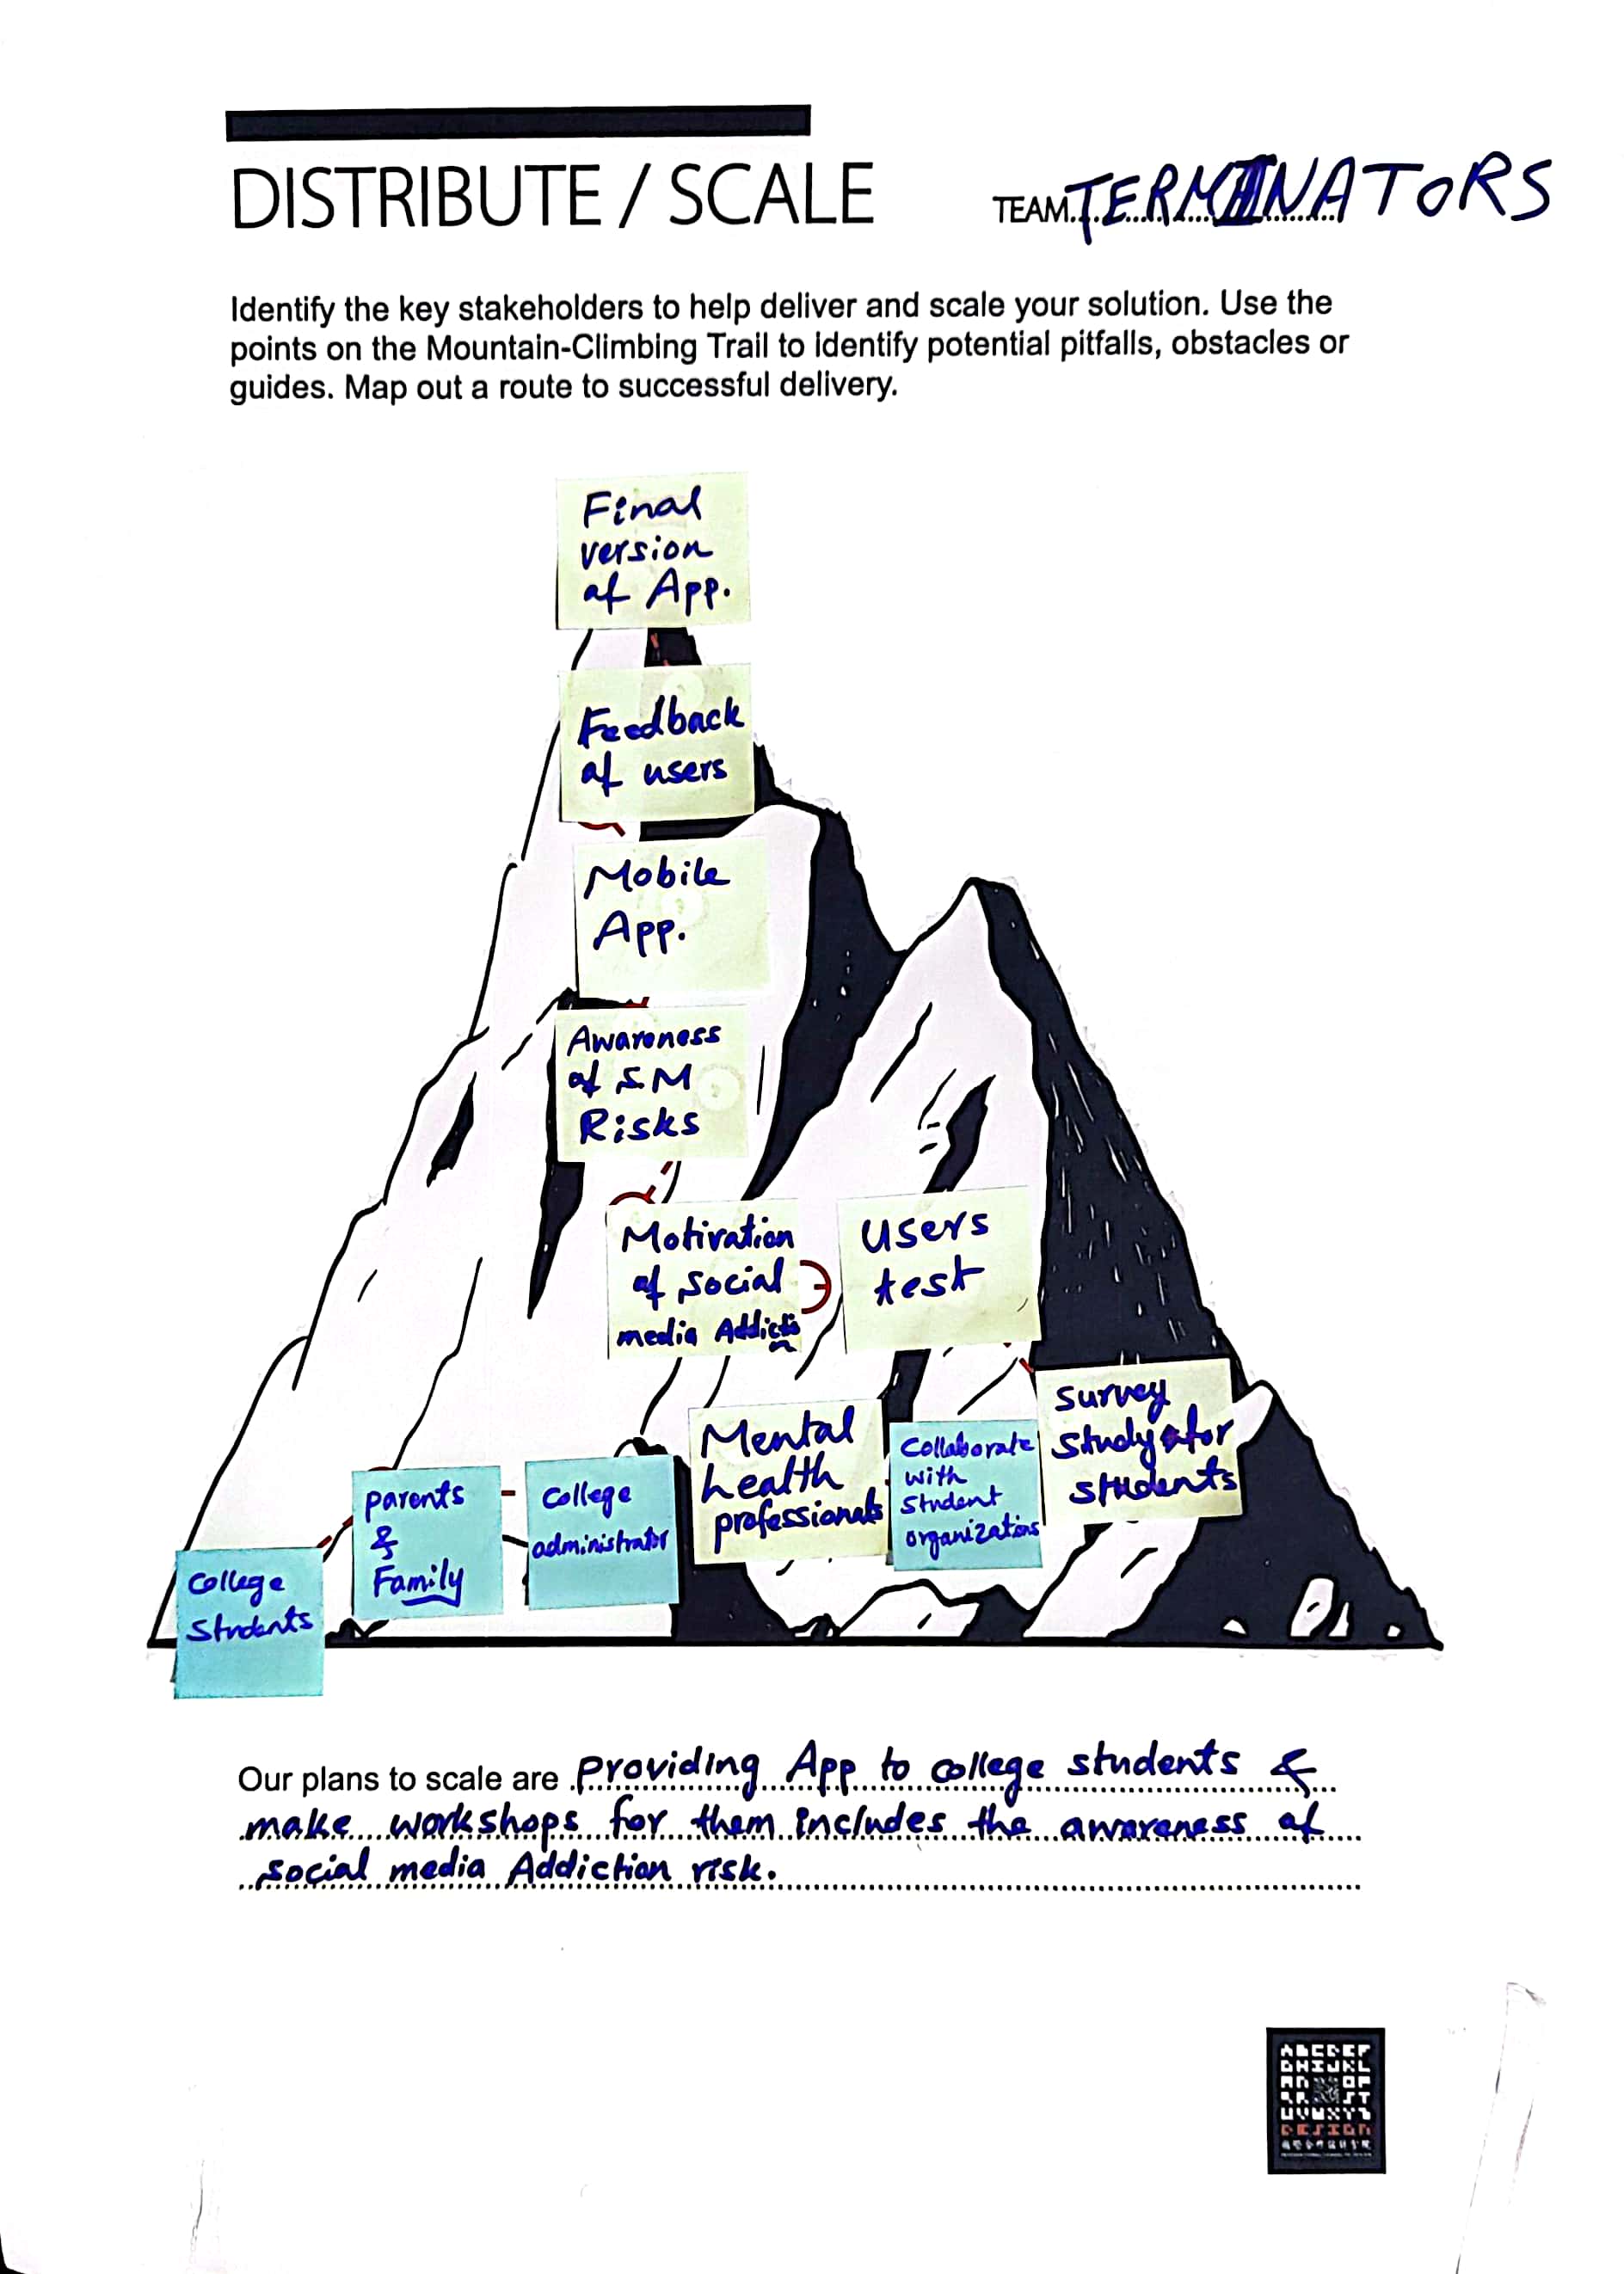 DISTRIBUTE / SCALE
TEAM TERMINATORS
Identify the key stakeholders to help deliver and scale your solution. Use the
points on the Mountain-Climbing Trail to identify potential pitfalls, obstacles or
guides. Map out a route to successful delivery.
Final
version
of App.
Feedback
of users
Mobile
App.
Awareness
of S.M
Risks
Motivation
of social
media Addicts
Users
test
Survey
study for
students
Mental
health
professionals
Collaborate
with
student
organizations
parents
&
Family
College
administrator
College
Students
Our plans to scale are providing App to college students &
make workshops for them includes the awareness of
social media Addiction risk.
DESIGN